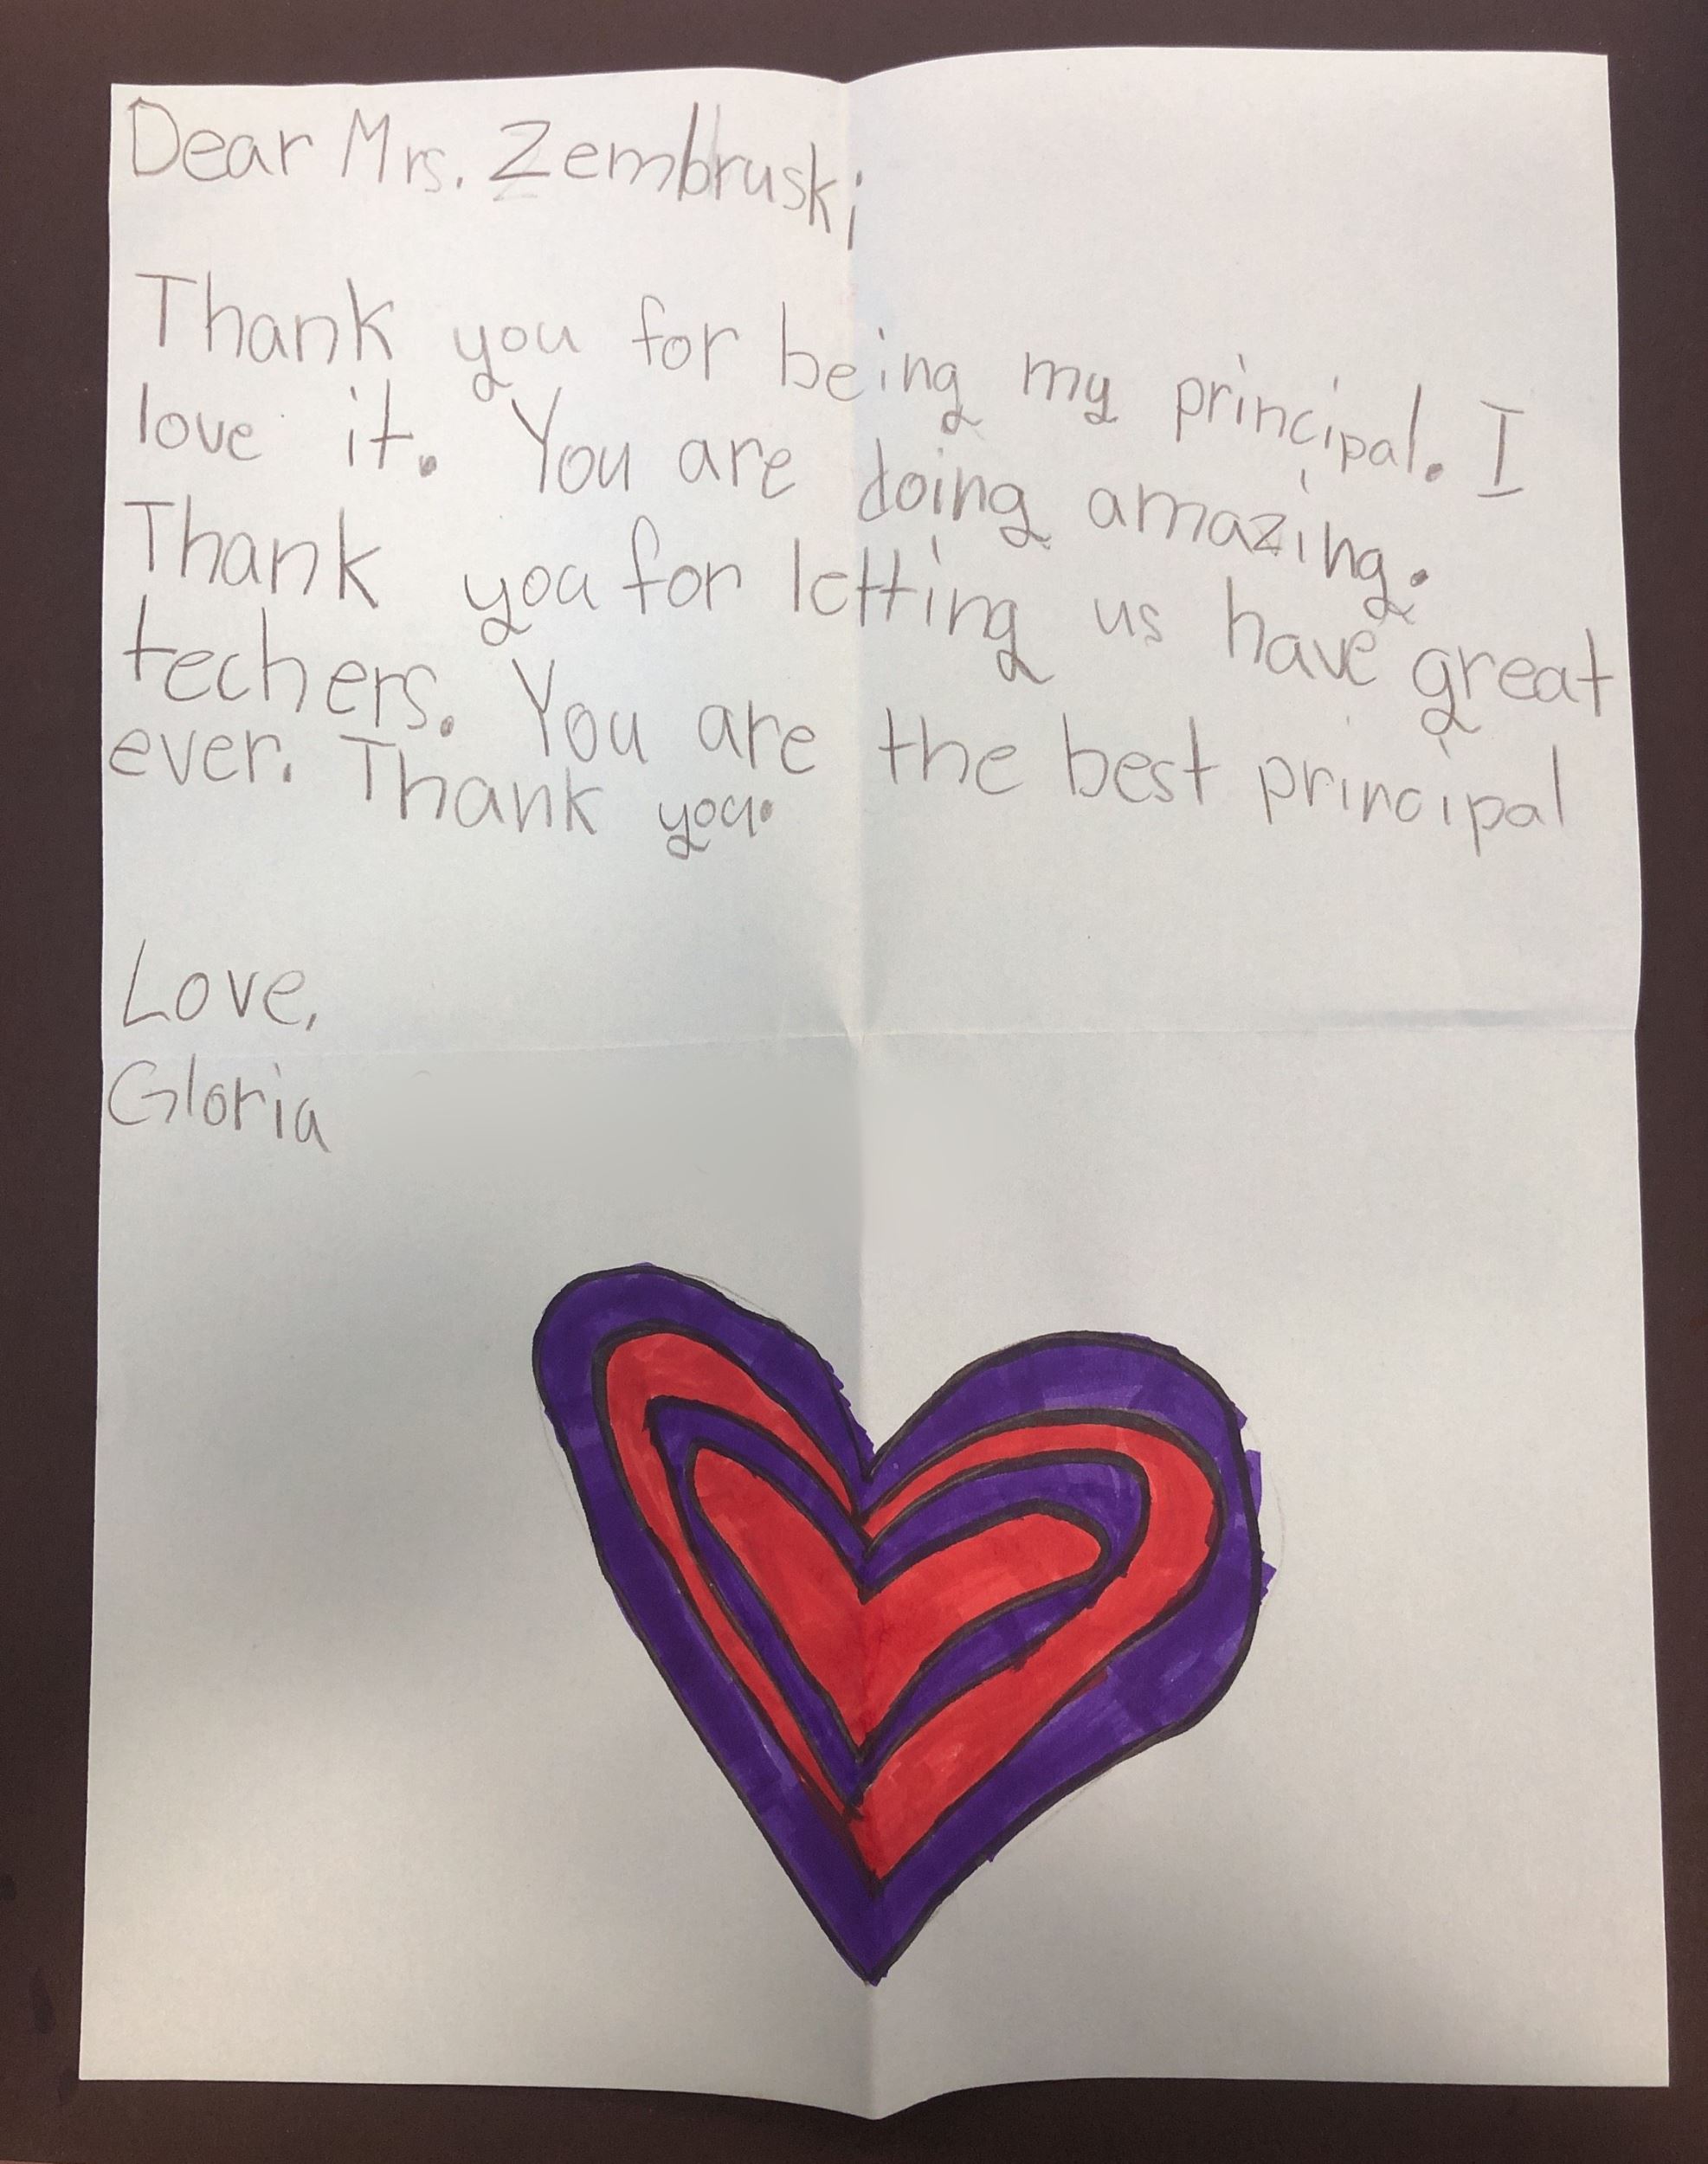 Dear Mrs. Zembruski
Thank you for being my principal. I
love it. You are doing amazing.
Thank you for letting us have great
techers. You are the best principal
ever. Thank you.
Love,
Gloria